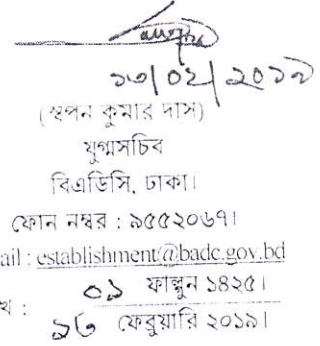 ১৩/০২/২০১৯
(স্বপন কুমার দাস)
যুগ্মসচিব
বিএডিসি, ঢাকা।
ফোন নম্বর : ৯৫৫২০৬৭।
ail : establishment@badc.gov.bd
০১ ফাল্গুন ১৪২৫।
খ :
১৩ ফেব্রুয়ারি ২০১৯।